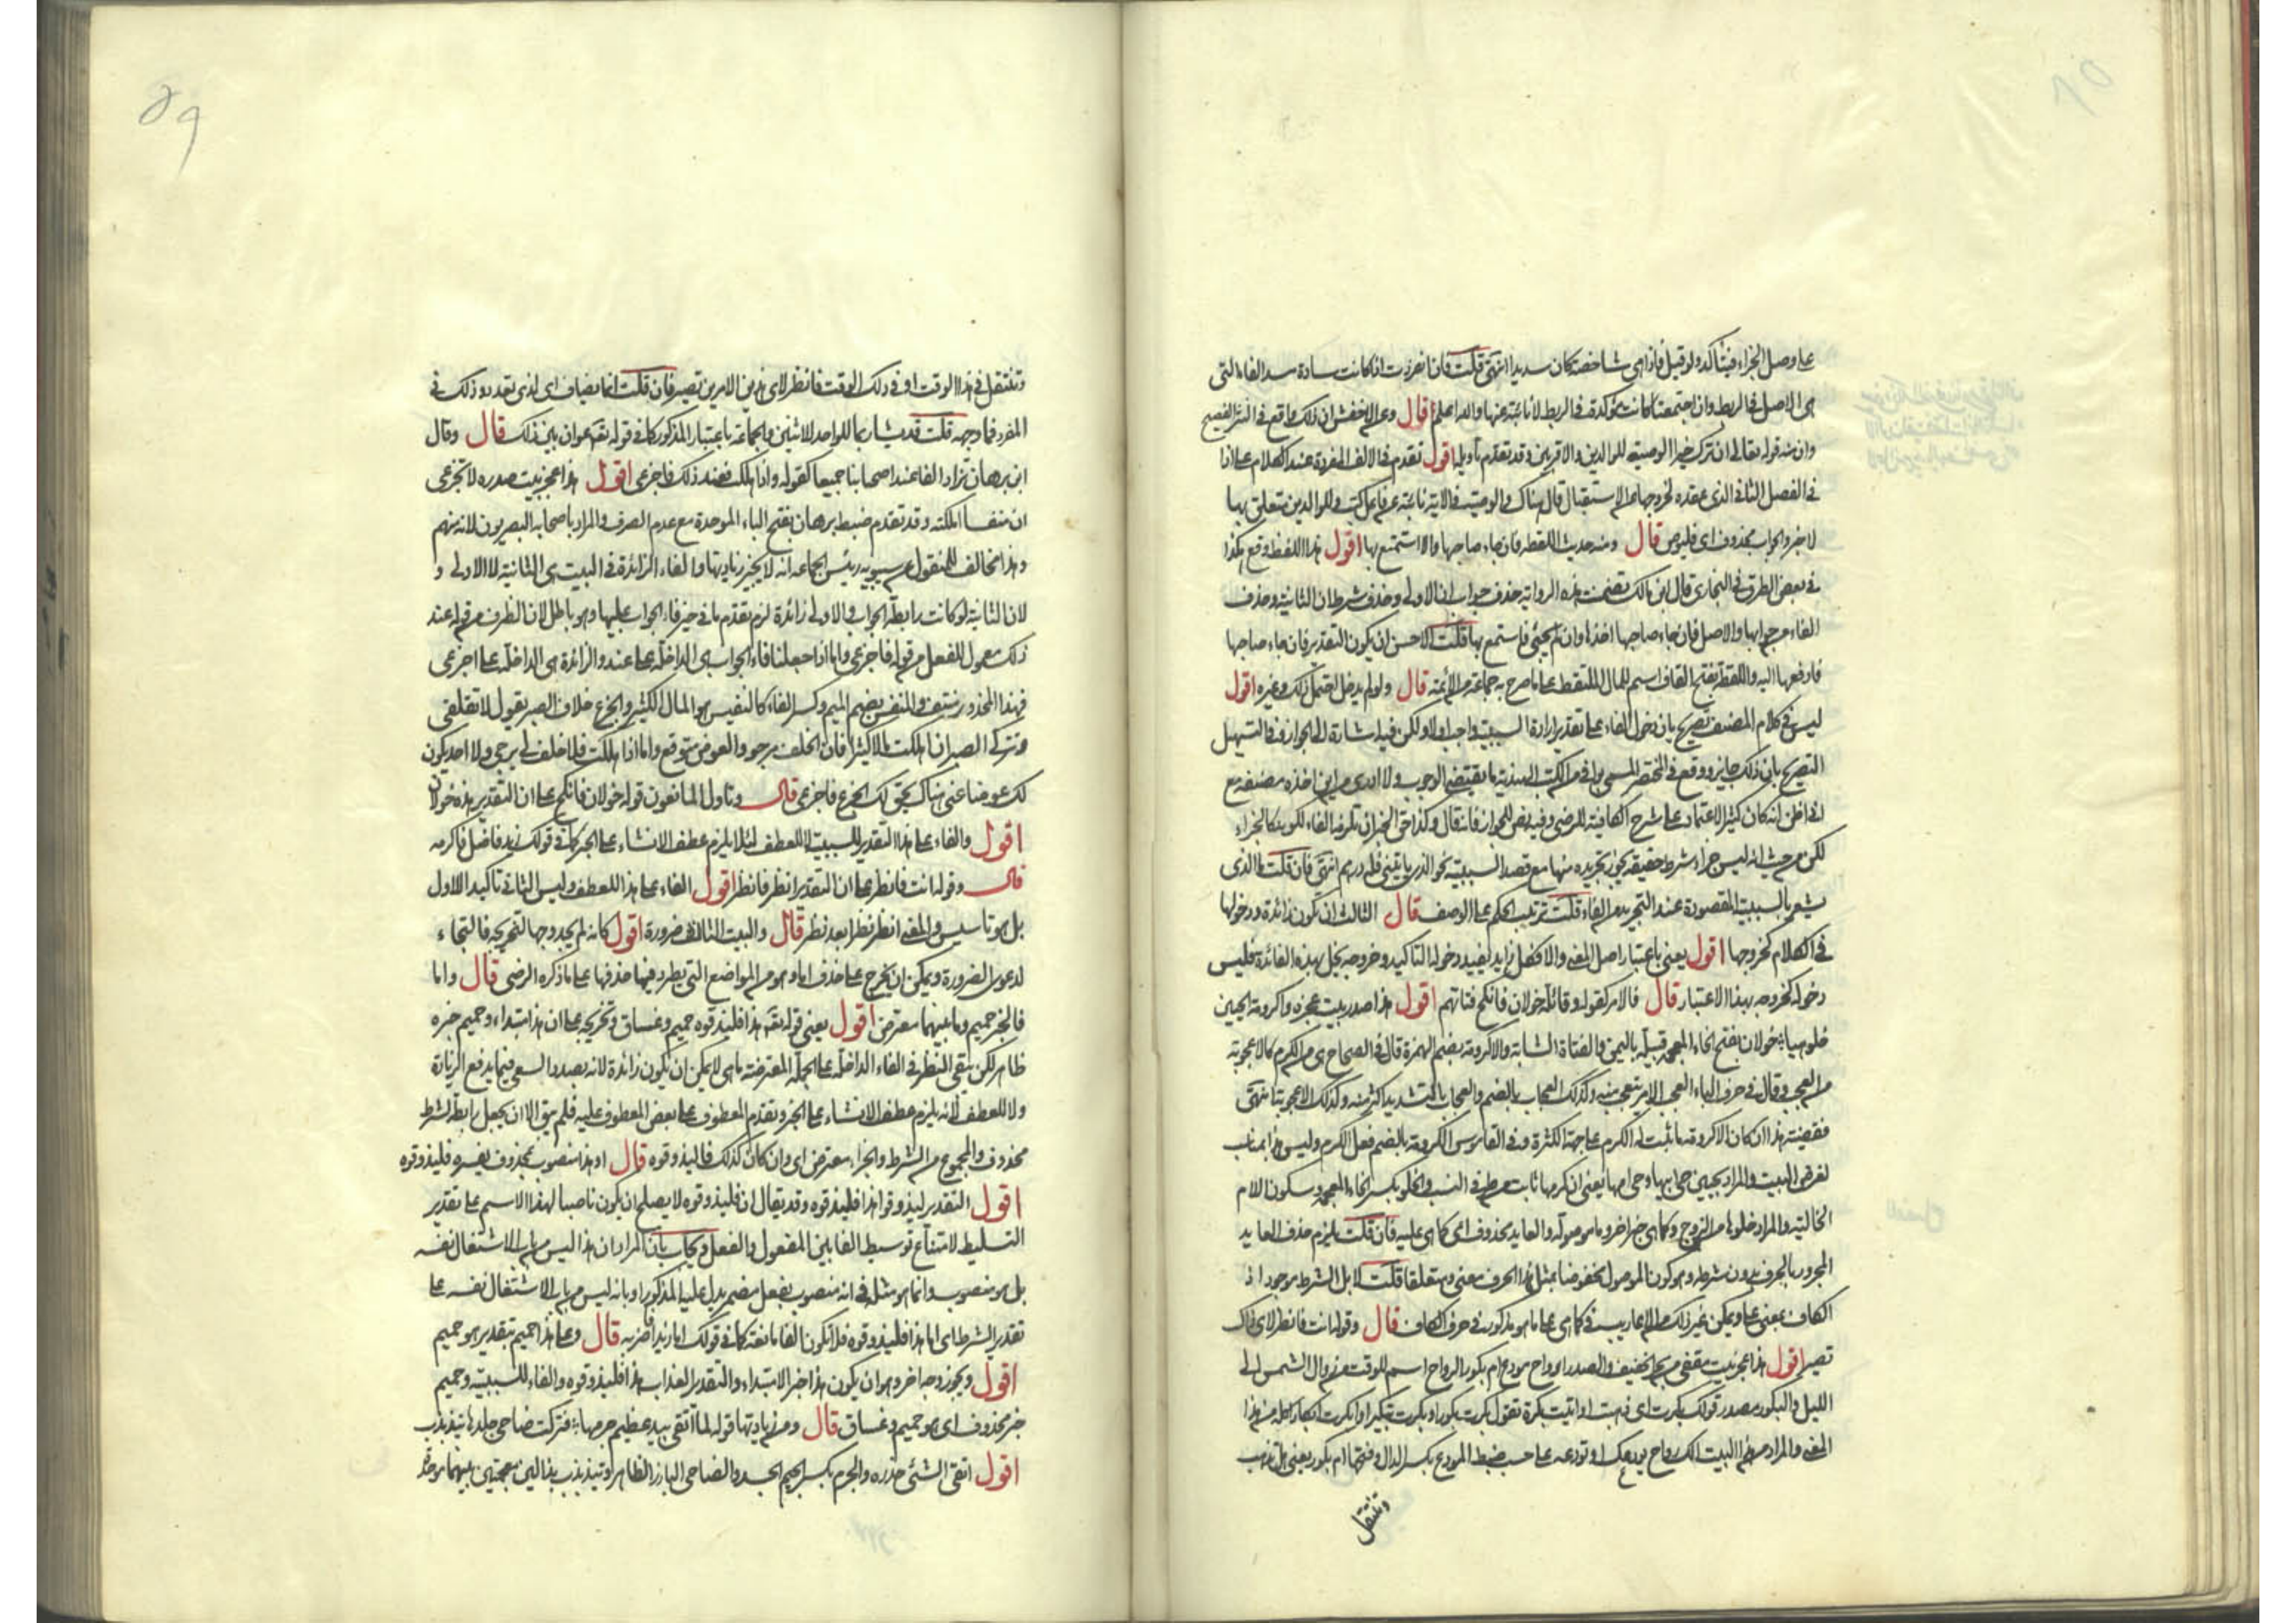 على وصل الجزاء فيتأكد ولو قيل فاذا هي شاخصة كان سديدا انتهى قلت فان انفردت اذا كانت سادة مسد الفاء التي
هي الاصل في الربط وان اجتمعتا كانت مؤكدة في الربط لا نائبة عنها والله اعلم قال وعن الاخفش ان ذلك واقع في النثر الفصيح
وان منه قوله تعالى ان ترك خيرا الوصية للوالدين والاقربين وقد تقدم تأويلها اقول تقدم في الالف المفردة عند الكلام على اذا
في الفصل الثاني الذي عقده لخروجها عن الاستقبال قال هناك والوصية في الاية نائبة عن فاعل كتب وللوالدين متعلق بها
لا خبر والجواب محذوف اي فليوص قال ومنه حديث اللقطة فان جاء صاحبها والا استمتع بها اقول هذا اللفظ وقع هكذا
في بعض الطرق في البخاري قال ابن مالك تضمنت هذه الرواية حذف جواب ان الاولى وحذف شرط ان الثانية وحذف
الفاء من جوابها والاصل فان جاء صاحبها اخذها وان لم يجئ فاستمتع بها قلت الاحسن ان يكون التقدير فان جاء صاحبها
فادفعها اليه واللقطة بفتح القاف اسم للمال الملتقط على ما صرح به جماعة من الائمة قال ولو لم يدخل احتمل ذلك وغيره اقول
ليس في كلام المصنف تصريح بان دخول الفاء على تقدير ارادة السببية واجب اولا ولكن فيه اشارة الى الجواز وفي التسهيل
التصريح بان ذلك جايز ووقع في المختصر المسمى بوافي من الكتب الهندية ما يقتضي الوجوب ولا ادري من اين اخذه مصنفه مع
اني اظن انه كان كثير الاعتماد على شرح الكافية للرضي وفيه نص للجواز فانه قال وكذا حق الخبر ان تلزمه الفاء لكونه كالجزاء
لكن من حيث انه ليس جزاء شرط حقيقة يجوز تجريده منها مع قصد السببية نحو الذي ياتيني فله درهم انتهى فان قلت ما الذي
يشعر بالسببية المقصودة عند التجريد من الفاء قلت ترتيب الحكم على الوصف قال الثالث ان تكون زائدة ودخولها
في الكلام كخروجها اقول يعني باعتبار اصل المعنى والا فكل زايد يفيد دخوله التاكيد وخروجه يخل بهذه الفائدة فليس
دخوله كخروجه بهذا الاعتبار قال فالامر كقوله وقائلة خولان فانكح فتاتهم اقول هذا صدر بيت عجزه واكرومة الحيين
خلو كما هيا خولان بفتح الخاء المعجمة قبيلة باليمن والفتاة الشابة والاكرومة بضم الهمزة قال في الصحاح هي من الكرم كالاعجوبة
من العجب وقال في حرف الباء العجب الامر يتعجب منه وكذلك العجاب بالضم والعجاب بالتشديد اكثر منه وكذلك الاعجوبة انتهى
فقضية هذا ان كان الاكرومة ما يثبت له الكرم على جهة الكثرة وفي القاموس الكرومة بالضم فعل الكرم وليس هذا بمناسب
لغرض البيت والمراد بحيين حي ابيها وحي امها يعني ان كرمها ثابت من طرفي النسب والخلو بكسر الخاء المعجمة وسكون اللام
الخالية والمراد خلوها من الزوج وكما هي خبر اخر وما موصولة والعايد محذوف اي كالتي هي عليه فان قلت يلزم حذف العايد
المجرور بالحرف بدون شرطه وهو كون الموصول مخفوضا بمثل هذا الحرف معنى ومتعلقا قلت لا بل الشرط موجود اذ
الكاف بمعنى على ويمكن غير ذلك من الاعاريب في كما هي على ما هو مذكور في حرف الكاف قال وقوله انت فانظر لاي ذاك
تصير اقول هذا عجز بيت مقفى من بحر الخفيف والصدر ارواح مودع ام بكور الرواح اسم للوقت من زوال الشمس الى
الليل والبكور مصدر قولك بكرت اي ذهبت او اتيت بكرة تقول بكرت بكورا وبكرت تبكيرا وابكرت ابكارا كله من هذا
المعنى والمراد من هذا البيت الك رواح يودعك او تودعه على حسب ضبط المودع بكسر الدال وفتحها ام بكور يعني هل تذهب
وتنتقل
وتنتقل في هذا الوقت او في ذلك الوقت فانظر لاي هذين الامرين تصير فان قلت انما يضاف اي لذي تعدد وذلك في
المفرد فما وجهه قلت قد يشار بما للواحد للاثنين والجماعة باعتبار المذكور كما في قوله تعالى عوان بين ذلك قال وقال
ابن برهان تزاد الفاء عند اصحابنا جميعا كقوله واذا هلكت فعند ذلك فاجزعي اقول هذا عجز بيت صدره لا تجزعي
ان منفسا اهلكته وقد تقدم ضبط برهان بفتح الباء الموحدة مع عدم الصرف والمراد باصحابه البصريون لانه منهم
وهذا مخالف للمنقول عن سيبويه رئيس الجماعة انه لا يجيز زيادتها والفاء الزائدة في البيت هي الثانية لا الاولى و
لان الثانية لو كانت رابطة الجواب والاولى زائدة لزم تقدم ما في حيز فاء الجواب عليها وهو باطل لان الظرف من قوله عند
ذلك معمول للفعل من قوله فاجزعي واما اذا جعلنا فاء الجواب هي الداخلة على عند والزائدة هي الداخلة على اجزعي
فهذا المحذور منتف والمنفس بضم الميم وكسر الفاء كالنفيس هو المال الكثير والجزع خلاف الصبر يقول لا تقلقي
وتتركي الصبر ان اهلكت المال كثيرا فان الخلف مرجو والعوض متوقع واما اذا هلكت فلا خلف لي يرجى ولا احد يكون
لك عوضا عني هناك يحق لك الجزع فاجزعي قال وتاول المانعون قوله خولان فانكح على ان التقدير هذه خولان
اقول والفاء على هذا التقدير للسببية لا للعطف لئلا يلزم عطف الانشاء على الخبر كما في قولك زيد فاضل فاكرمه
قال وقوله انت فانظر على ان التقدير انظر فانظر اقول الفاء على هذا للعطف وليس الثاني تاكيد الاول
بل هو تاسيس والمعنى انظر نظرا بعد نظر قال والبيت الثالث ضرورة اقول كانه لم يجد وجها لتخريجه فالتجاء
لدعوى الضرورة ويمكن ان يخرج على حذف اما وهو من المواضع التي يطرد فيها حذفها على ما ذكره الرضي قال واما
فالخبر حميم وما بينهما معترض اقول يعني قوله تعالى هذا فليذوقوه حميم وغساق وتخريجه على ان هذا مبتداء وحميم خبره
ظاهر لكن يبقى النظر في الفاء الداخلة على الجملة المعترضة ما هي لا يمكن ان تكون زائدة لانه بصدد السعي فيما يدفع الزيادة
ولا للعطف لانه يلزم عطف الانشاء على الخبر وتقدم المعطوف على بعض المعطوف عليه فلم يبق الا ان يجعل رابطة لشرط
محذوف والمجموع من الشرط والجزاء معترض اي وان كان كذلك فاليذوقوه قال او هذا منصوب بمحذوف يفسره فليذوقوه
اقول التقدير ليذوقوا هذا فليذوقوه وقد يقال ان فليذوقوه لا يصلح ان يكون ناصبا لهذا الاسم على تقدير
التسليط لامتناع توسيط الفا بين المفعول والفعل ويجاب بان المراد ان هذا ليس من باب الاشتغال نفسه
بل هو منصوب وانما هو مثله في انه منصوب بفعل مضمر يدل عليه المذكور او بانه ليس من باب الاشتغال نفسه على
تقدير الشرط اي اما هذا فليذوقوه فلا تكون الفا مانعة كما في قولك اما زيدا فاضربه قال وعلى هذا حميم بتقدير هو حميم
اقول ويجوز وجه اخر وهو ان يكون هذا خبر الابتداء والتقدير العذاب هذا فليذوقوه والفاء للسببية وحميم
خبر محذوف اي هو حميم وغساق قال ومن زيادتها قوله لما اتقى بيد عظيم جرمها فتركت ضاحي جلدها يتذبذب
اقول اتقى الشئ حذره والجرم بكسر الجيم الجسد والضاحي البارز الظاهر ويتذبذب بذالين معجمتين بينهما موحدة